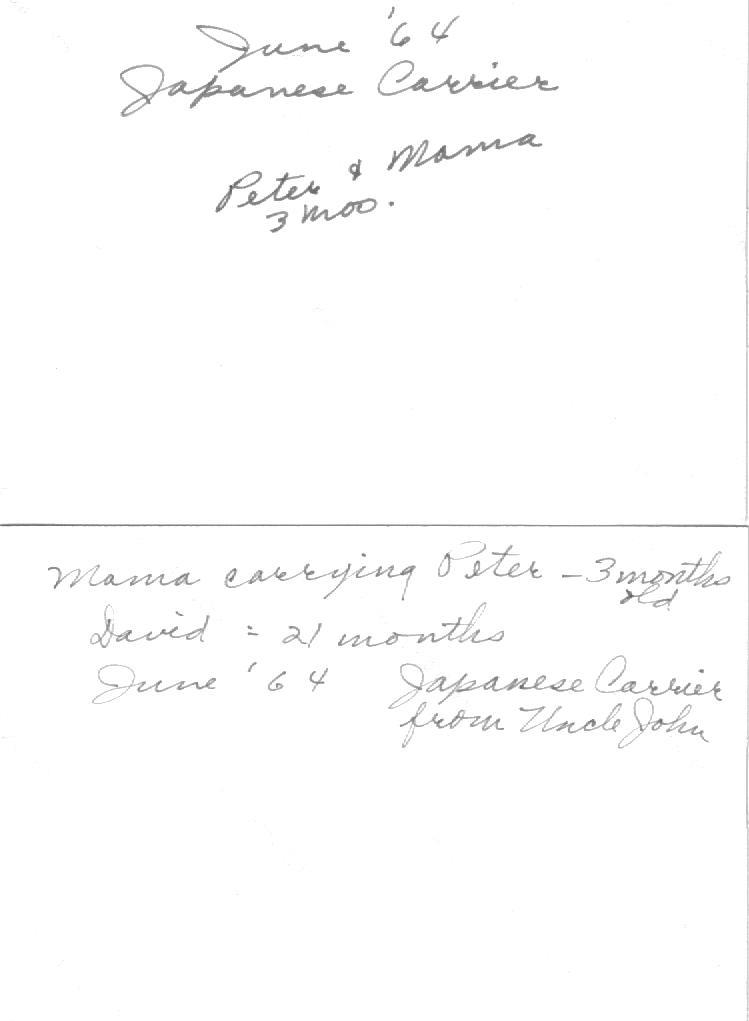 June '64
Japanese Carrier
Peter & Mama
3 mos.
Mama carrying Peter - 3 months
old
David = 21 months
June '64 Japanese Carrier
from Uncle John